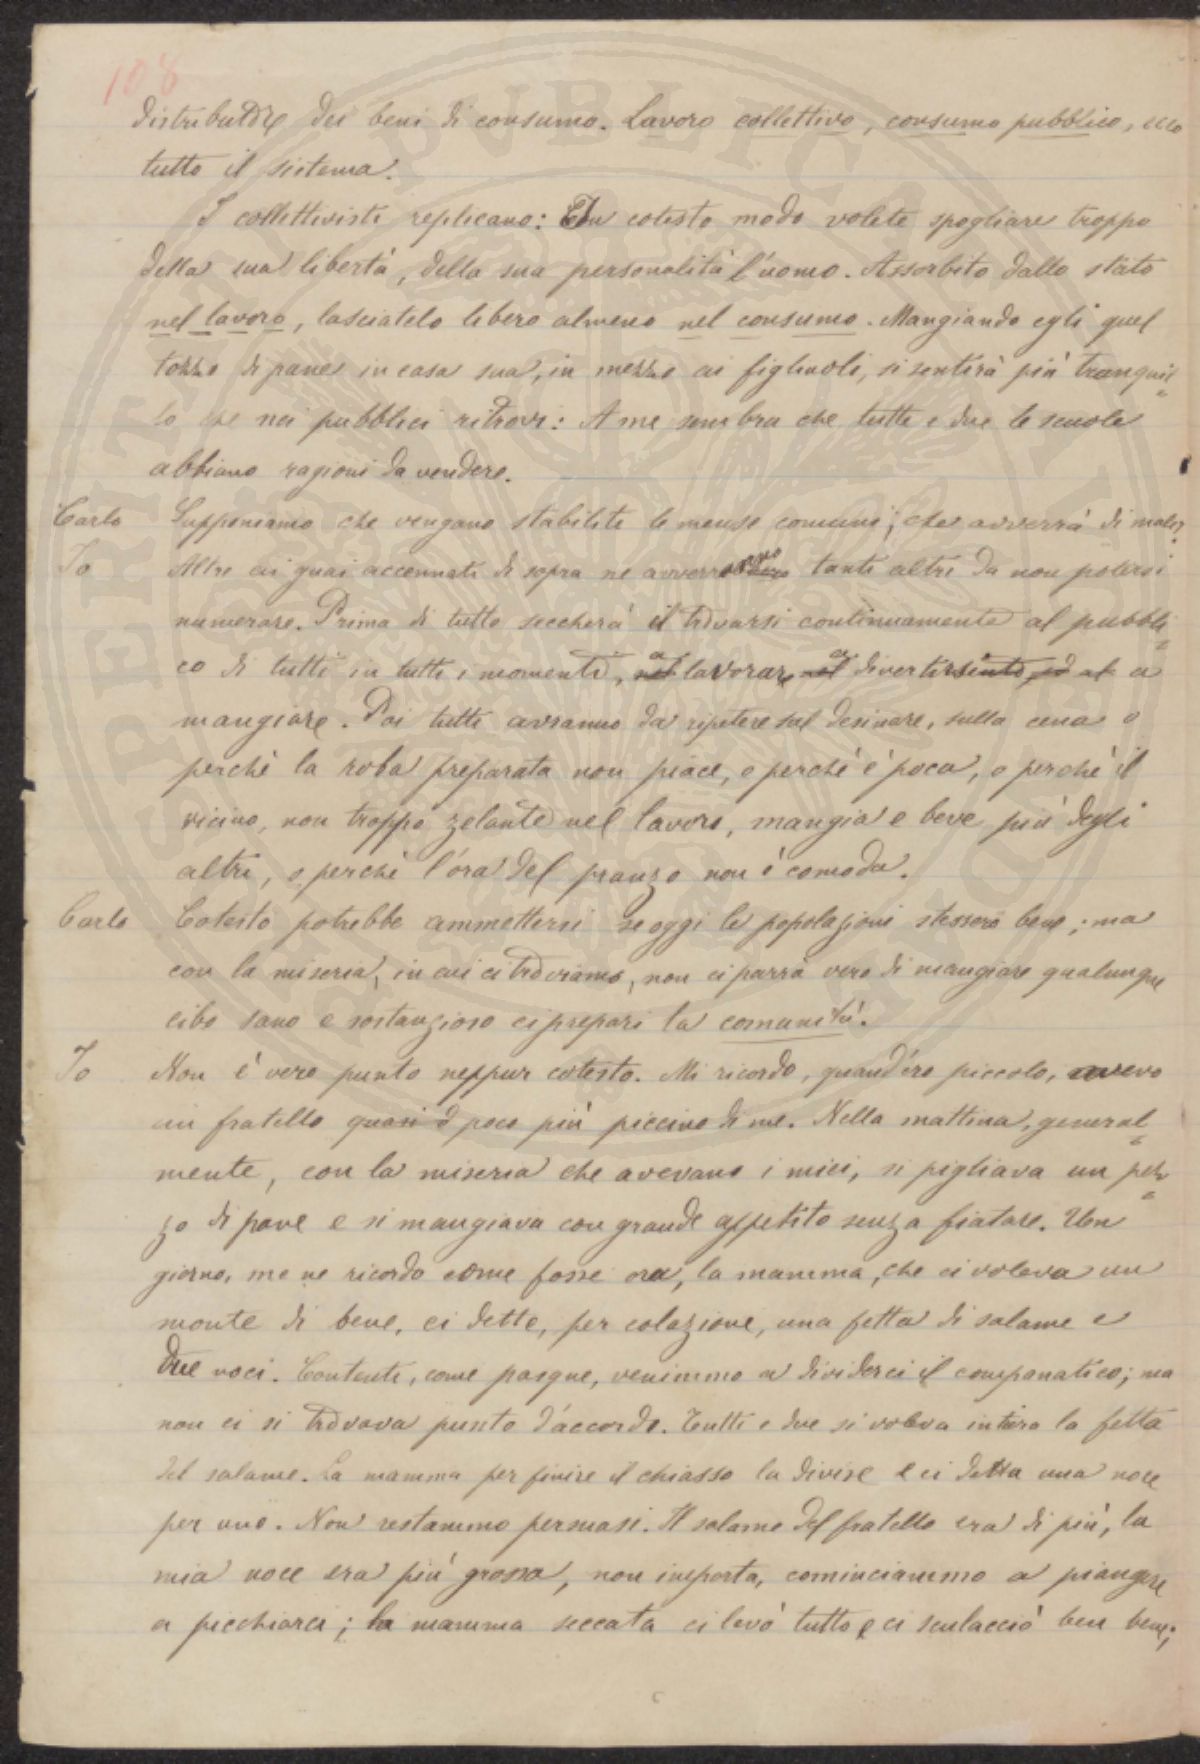 108
distributore dei beni di consumo. Lavoro collettivo, consumo pubblico, ecco
tutto il sistema.
I collettivisti replicano: Con cotesto modo volete spogliare troppo
della sua libertà, della sua personalità l'uomo. Assorbito dallo stato
nel lavoro, lasciatelo libero almeno nel consumo. Mangiando egli quel
tozzo di pane in casa sua, in mezzo ai figliuoli, si sentirà più tranquil=
lo che nei pubblici ritrovi: A me sembra che tutte e due le scuole
abbiano ragioni da vendere.
Carlo Supponiamo che vengano stabilite le mense comuni; che avverrà di male?
Io Altre ai guai accennati di sopra ne avverranno tanti altri da non potersi
numerare. Prima di tutto seccherà il trovarsi continuamente al pubbli=
co di tutti in tutti i momenti, a lavorare, a divertirsi, a
mangiare. Poi tutti avranno da ripetere sul desinare, sulla cena o
perchè la roba preparata non piace, o perchè è poca, o perchè il
vicino, non troppo zelante nel lavoro, mangia e beve più degli
altri, o perchè l'ora del pranzo non è comoda.
Carlo Cotesto potrebbe ammettersi se oggi le popolazioni stessero bene; ma
con la miseria, in cui ci troviamo, non ci parrà vero di mangiare qualunque
cibo sano e sostanzioso ci prepari la comunità.
Io Non è vero punto neppur cotesto. Mi ricordo, quand'ero piccolo, avevo
un fratello quasi o poco più piccino di me. Nella mattina, general=
mente, con la miseria che avevano i miei, si pigliava un pez=
zo di pane e si mangiava con grande appetito senza fiatare. Un
giorno, me ne ricordo come fosse ora, la mamma, che ci voleva un
monte di bene, ci dette, per colazione, una fetta di salame e
due noci. Contenti, come pasque, venimmo a dividerci il companatico; ma
non ci si trovava punto d'accordo. Tutti e due si voleva intera la fetta
del salame. La mamma per finire il chiasso la divise e ci detta una noce
per uno. Non restammo persuasi. Il salame del fratello era di più, la
mia noce era più grossa, non importa, cominciammo a piangere
a picchiarci; la mamma seccata ci levò tutto e ci sculacciò ben bene;